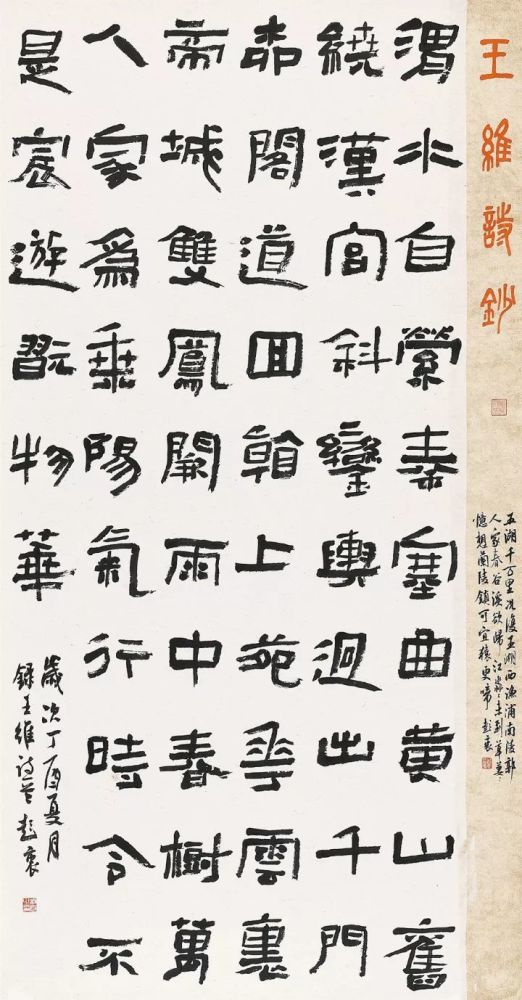 王維詩鈔
五湖千万里况復五湖西漁浦南陵郭
人家春谷溪欲歸江淼淼未到草萋〻
憶想蘭陵鎮可宜猿更啼
渭水自縈秦塞曲黄山舊
繞漢宫斜鑾輿迥出千門
柳閣道囬看上苑花雲裏
帝城雙鳳闕雨中春樹萬
人家爲乗陽氣行時令不
是宸遊翫物華
歲次丁酉夏月
錄王維詩